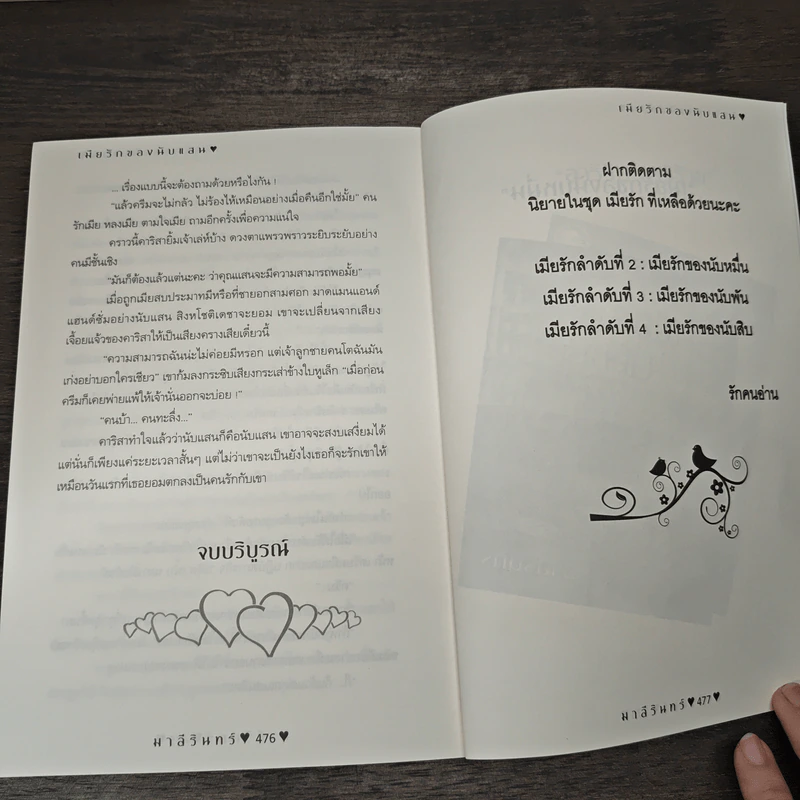 เมียรักของนับแสน♥
... เรื่องแบบนี้จะต้องถามด้วยหรือไงกัน !
"แล้วครีมจะไม่กลัว ไม่ร้องไห้เหมือนอย่างเมื่อคืนอีกใช่มั้ย" คน
รักเมีย หลงเมีย ตามใจเมีย ถามอีกครั้งเพื่อความแน่ใจ
คราวนี้คาริสายิ้มเจ้าเล่ห์บ้าง ดวงตาแพรวพราวระยิบระยับอย่าง
คนมีชั้นเชิง
"มันก็ต้องแล้วแต่นะคะ ว่าคุณแสนจะมีความสามารถพอมั้ย"
เมื่อถูกเมียสบประมาทมีหรือที่ชายอกสามศอก มาดแมนแอนด์
แฮนด์ซั่มอย่างนับแสน สิงหโชติเดชาจะยอม เขาจะเปลี่ยนจากเสียง
เจื้อยแจ้วของคาริสาให้เป็นเสียงครางเสียเดี๋ยวนี้
"ความสามารถฉันน่ะไม่ค่อยมีหรอก แต่เจ้าลูกชายคนโตฉันมัน
เก่งอย่าบอกใครเชียว" เขาก้มลงกระซิบเสียงกระเส่าข้างใบหูเล็ก "เมื่อก่อน
ครีมก็เคยพ่ายแพ้ให้เจ้านั่นออกจะบ่อย !"
"คนบ้า... คนทะลึ่ง..."
คาริสาทำใจแล้วว่านับแสนก็คือนับแสน เขาอาจจะสงบเสงี่ยมได้
แต่นั่นก็เพียงแค่ระยะเวลาสั้นๆ แต่ไม่ว่าเขาจะเป็นยังไงเธอก็จะรักเขาให้
เหมือนวันแรกที่เธอยอมตกลงเป็นคนรักกับเขา
จบบริบูรณ์
มาลีรินทร์♥ 476 ♥
เมียรักของนับแสน♥
ฝากติดตาม
นิยายในชุด เมียรัก ที่เหลือด้วยนะคะ
เมียรักลำดับที่ 2 : เมียรักของนับหมื่น
เมียรักลำดับที่ 3 : เมียรักของนับพัน
เมียรักลำดับที่ 4 : เมียรักของนับสิบ
รักคนอ่าน
มาลีรินทร์♥ 477♥